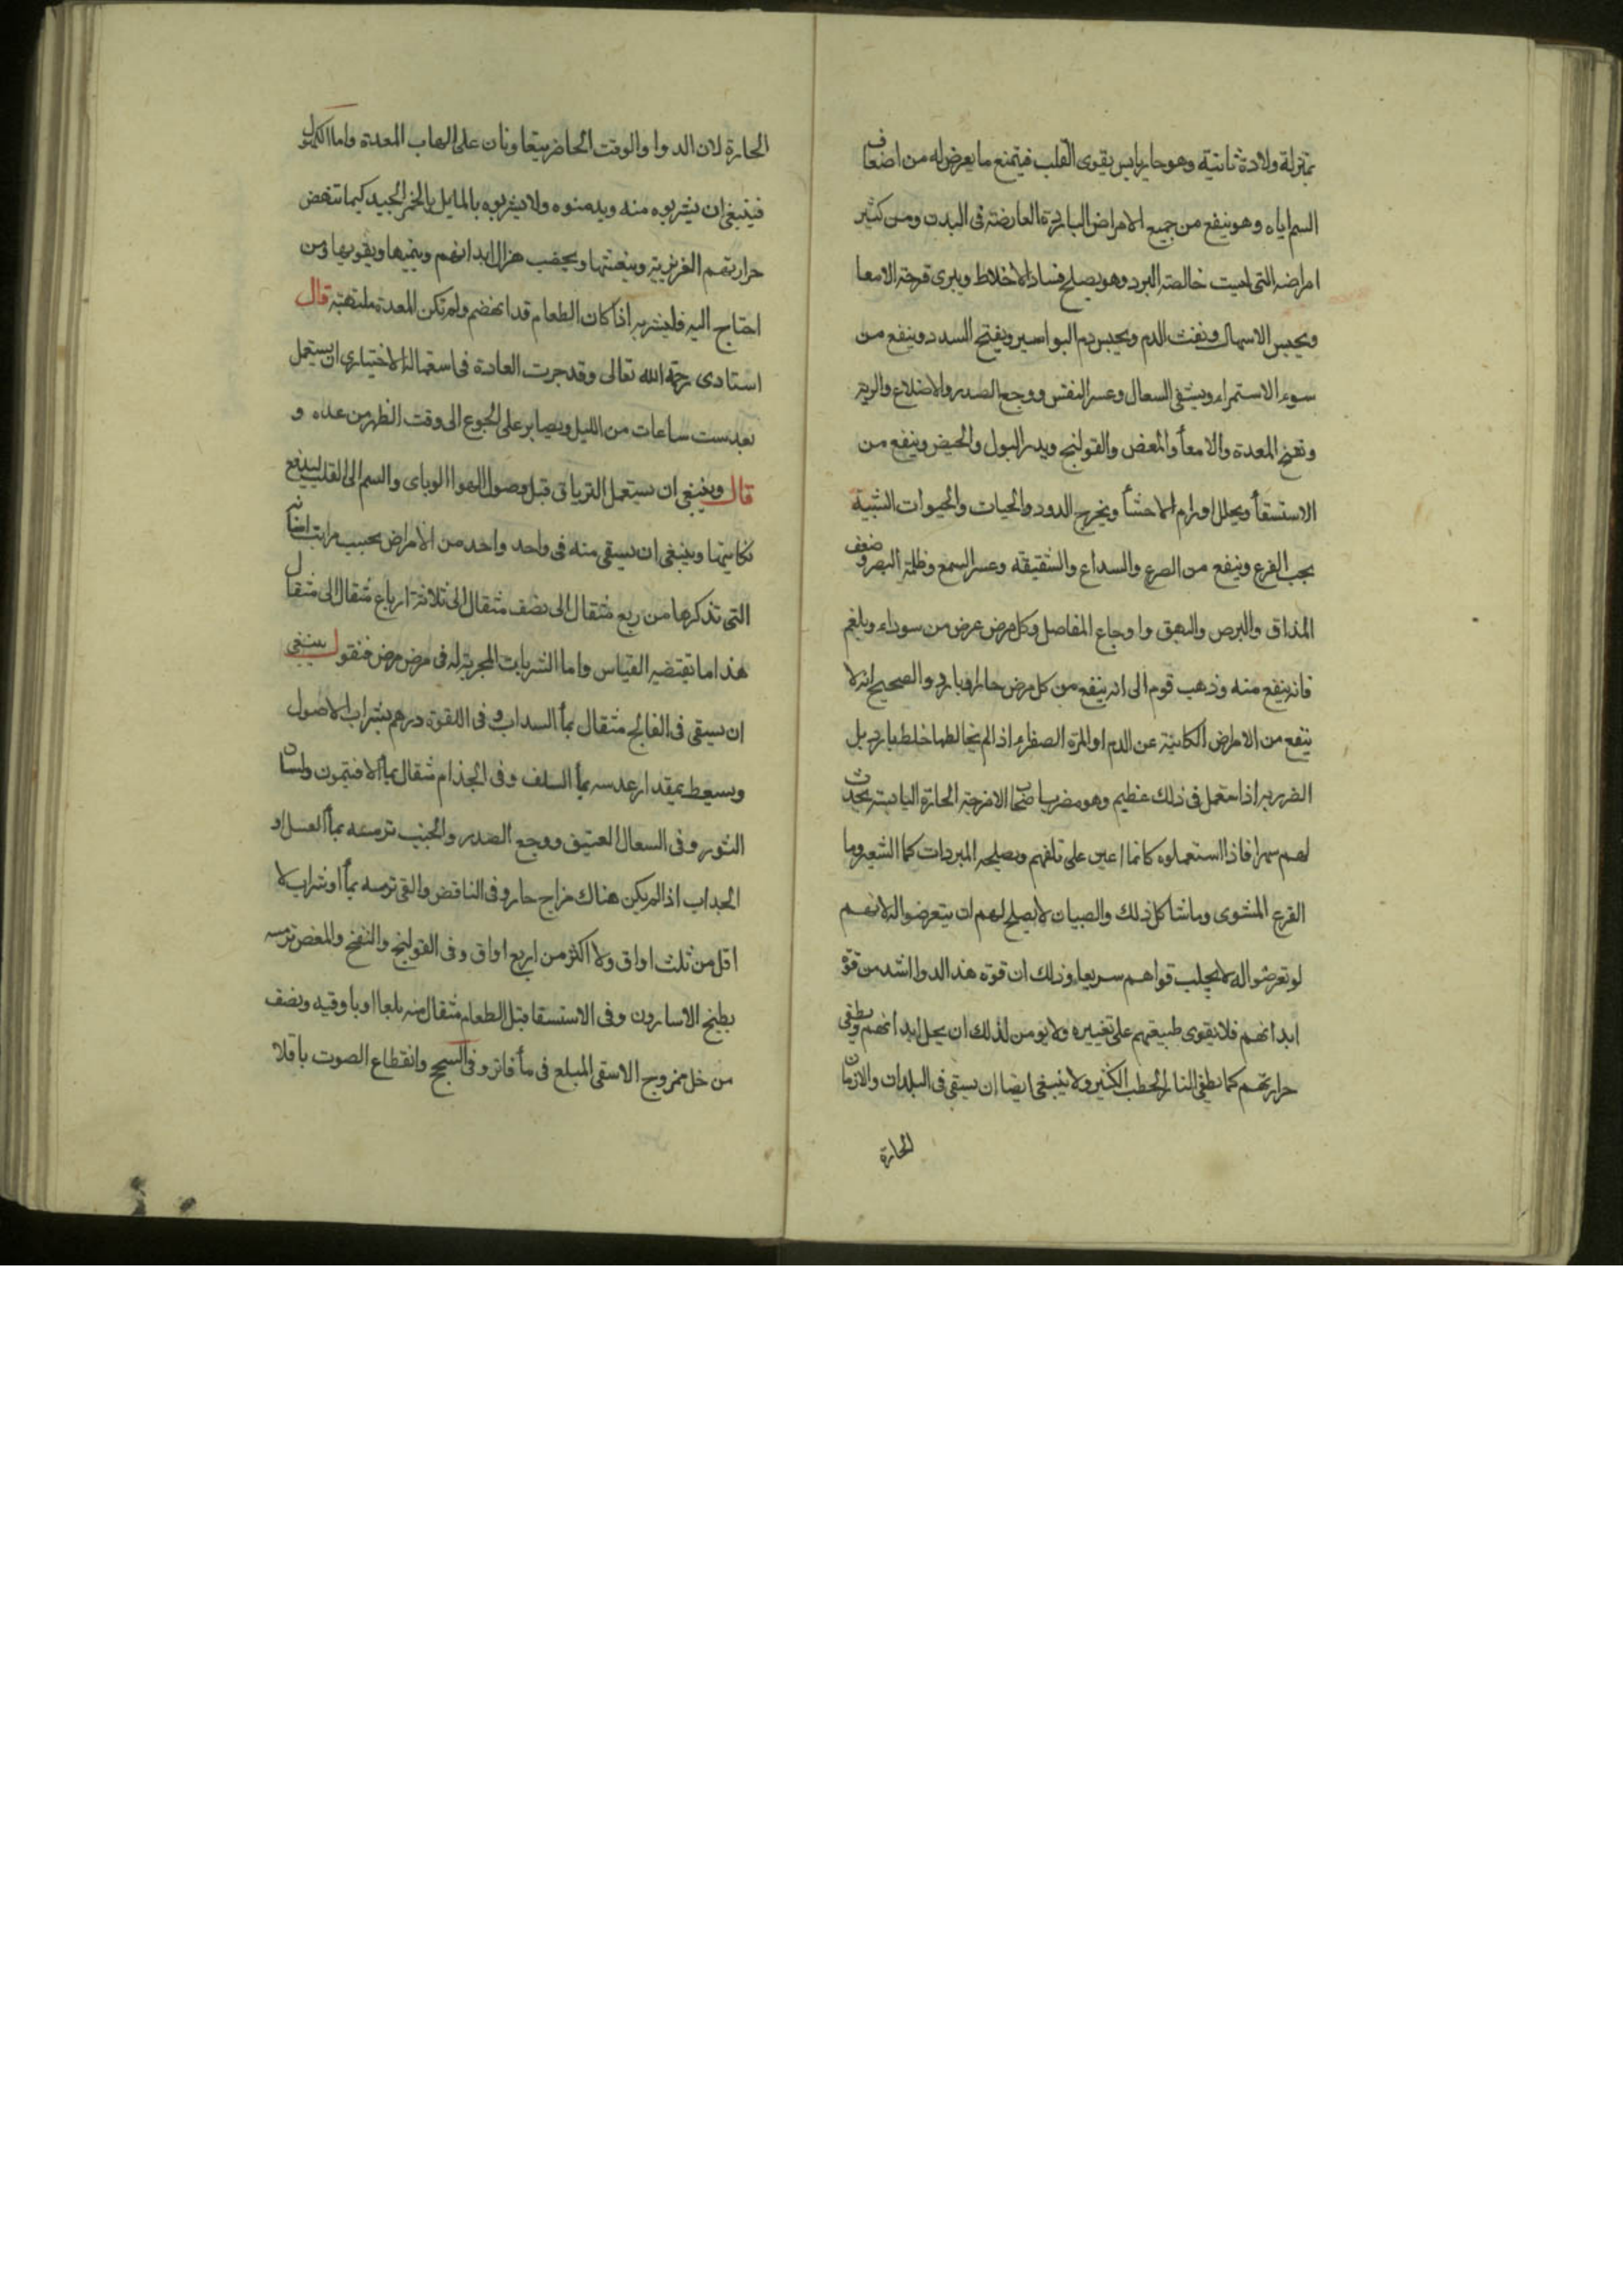 بمنزلة ولادة ثانية وهو حار يابس يقوى القلب فيمنع ما يعرض له من اضعاف
السم اياه وهو ينفع من جميع الامراض الباردة العارضة فى البدن ومن كثير
امراضه التى ليست خالصة البرد وهو يصلح فساد الاخلاط ويبرى قرحة الامعا
ويحبس الاسهال ونفث الدم ويحبس دم البواسير ويفتح السدد وينفع من
سوء الاستمراء ويشفى السعال وعسر النفس ووجع الصدر والاضلاع والرية
ونفخ المعدة والامعأ والمغص والقولنج ويدر البول والحيض وينفع من
الاستسقأ ويحلل اورام الاحشأ ويخرج الدود والحيات والحيوات الشبية
بحب القرع وينفع من الصرع والسداع والشقيقه وعسر السمع وظلمة البصر وضعف
المذاق والبرص والبهق واوجاع المفاصل وكل مرض عرض من سوداء وبلغم
فانه ينفع منه وذهب قوم الى انه ينفع من كل مرض حار او بارد والصحيح انه لا
ينفع من الامراض الكائنة عن الدم او المرة الصفراء اذا لم يخالطها خلط بارد بل
الضرر به اذا استعمل فى ذلك عظيم وهو مضر باصحاب الامزجة الحارة اليابسة يحدث
لهم سهرا فاذا استعملوه كانما اعين على تلفهم ويصلحه المبردات كما الشعير وما
القرع المشوى وماشاكل ذلك والصبيان لا يصلح لهم ان يتعرضوا له لانهم
لو تعرضوا له لا يجلب قواهم سريعا وذلك ان قوة هذا الدوا اشد من قوة
ابدانهم فلا يقوى طبيعتهم على تغييره ولا يومن لذلك ان يحل ابدانهم ويطفى
حرارتهم كما يطفى النار الحطب الكثير ولا ينبغى ايضا ان يسقى فى البلدان والازمان
الحارة
الحارة لان الدوا والوقت الحاضر يتعاونان على الهاب المعدة واما الكهول
فينبغى ان يشربوه منه ويدمنوه ولا يشربوه بالمابل بالخمر الجيد كيما تنهض
حرارتهم الغريزية وينعشها ويخصب هزال ابدانهم وينميها ويقويها ومن
احتاج اليه فليشربه اذا كان الطعام قد انهضم ولم تكن المعدة ملتهبة قال
استادى رحمة الله تعالى وقد جرت العادة فى استعماله الاختيارى ان يستعمل
بعد ست ساعات من الليل ويصابر على الجوع الى وقت الظهر من عده و
قال وينبغى ان يستعمل الترياق قبل وصول الهوا الوباى والسم الى القلب ليدفع
نكايتها وينبغى ان يسقى منه فى واحد واحد من الامراض بحسب مراتب
التى نذكرها من ربع مثقال الى نصف مثقال الى ثلاثة ارباع مثقال الى مثقال
هذا ما تقتضيه القياس واما الشربات المجربة له فى مرض مرض فنقول ينبغى
ان يسقى فى الفالج مثقال بمأ السداب وفى اللقوة درهم بشراب الاصول
ويسعط بمقدار عدسه بمأ السلف وفى الجذام مثقال بمأ الافتيمون ولسان
الثور وفى السعال العتيق ووجع الصدر والجنب ترمسه بمأ العسل او
الجداب اذا لم يكن هناك مزاج حار وفى النافض والقى ترمسه بمأ او شراب لا
اقل من ثلث اواق ولا اكثر من اربع اواق وفى القولنج والنفخ والمغص ترمسه
بطبيخ الاسارون وفى الاستسقا قبل الطعام مثقال منه بلعا او باوقيه ونصف
من خل ممزوج الاسقى المبلع فى مأ فاتر وفى السحج وانقطاع الصوت باقلا